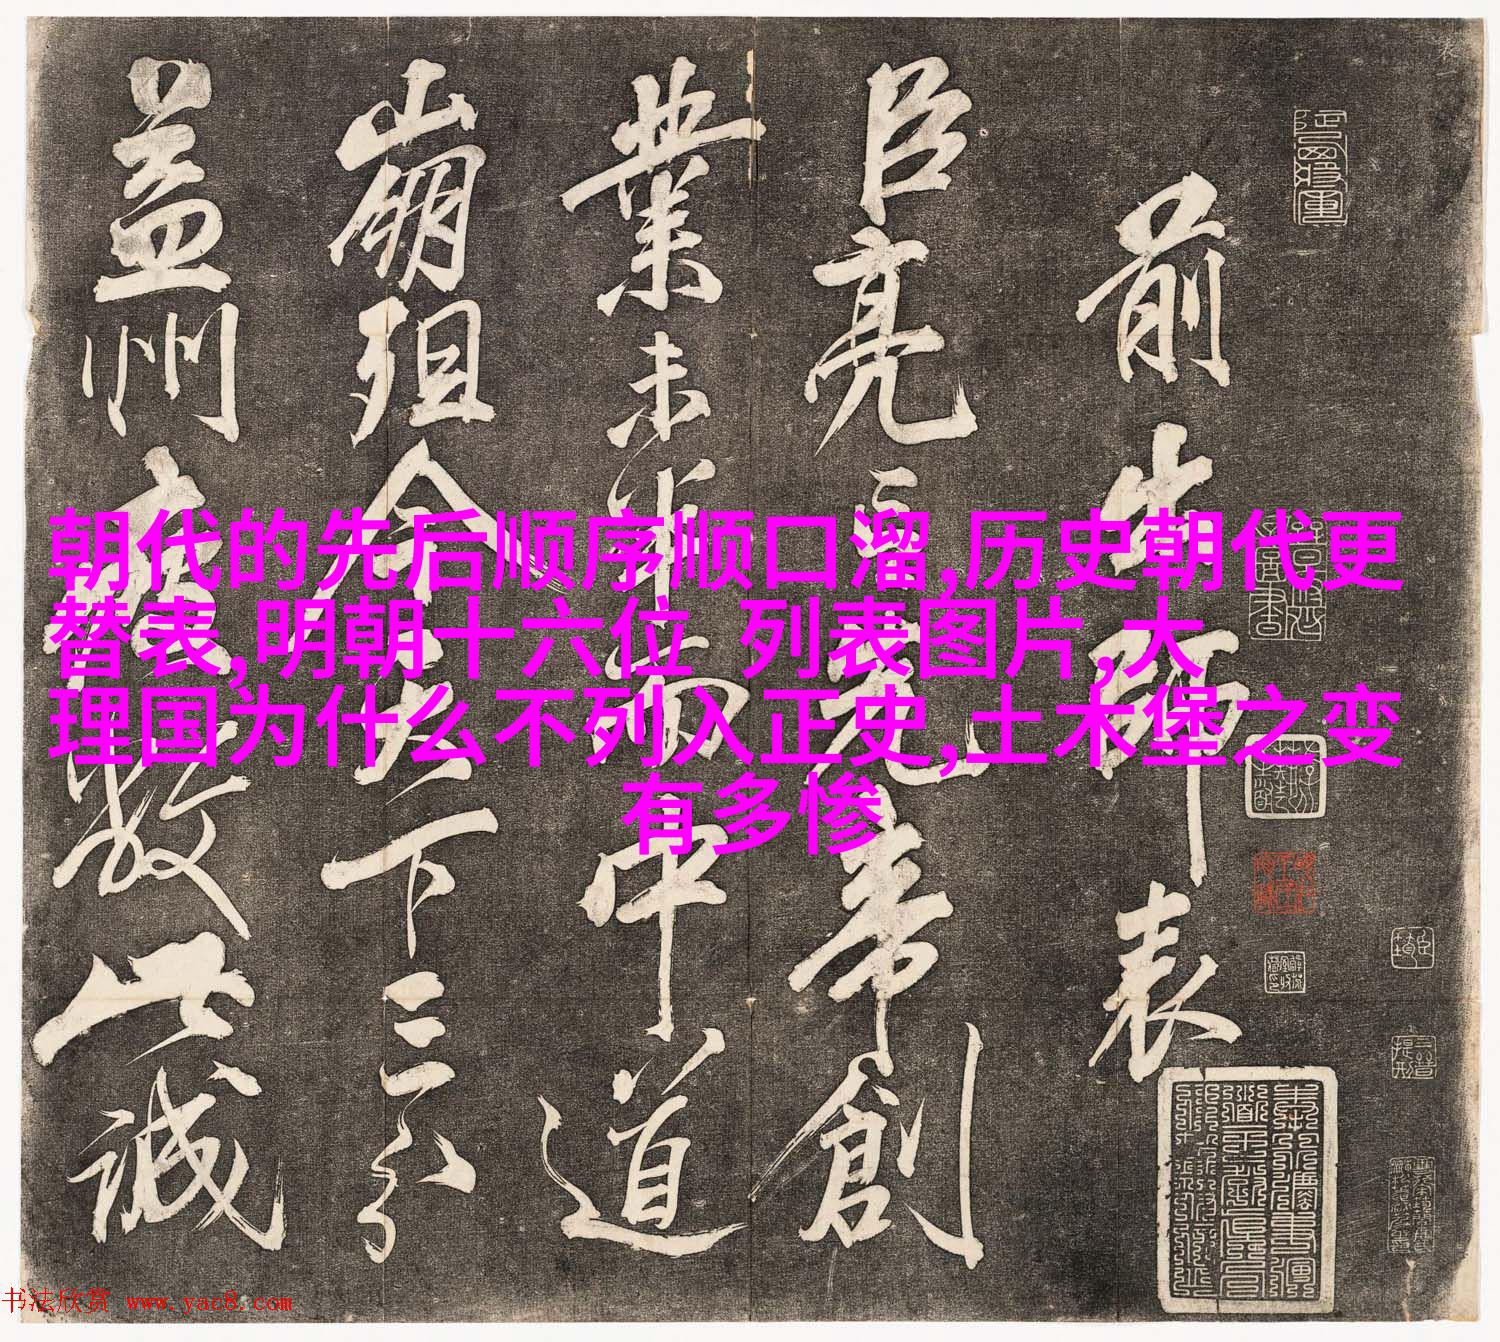 前出師表
臣亮言先帝創
業未半而中道
崩殂今天下三分
益州疲敝此誠
朝代的先后顺序顺口溜,历史朝代更
替表,明朝十六位 列表图片,大
理国为什么不列入正史,土木堡之变
有多惨
书法欣赏 www.yac8.com